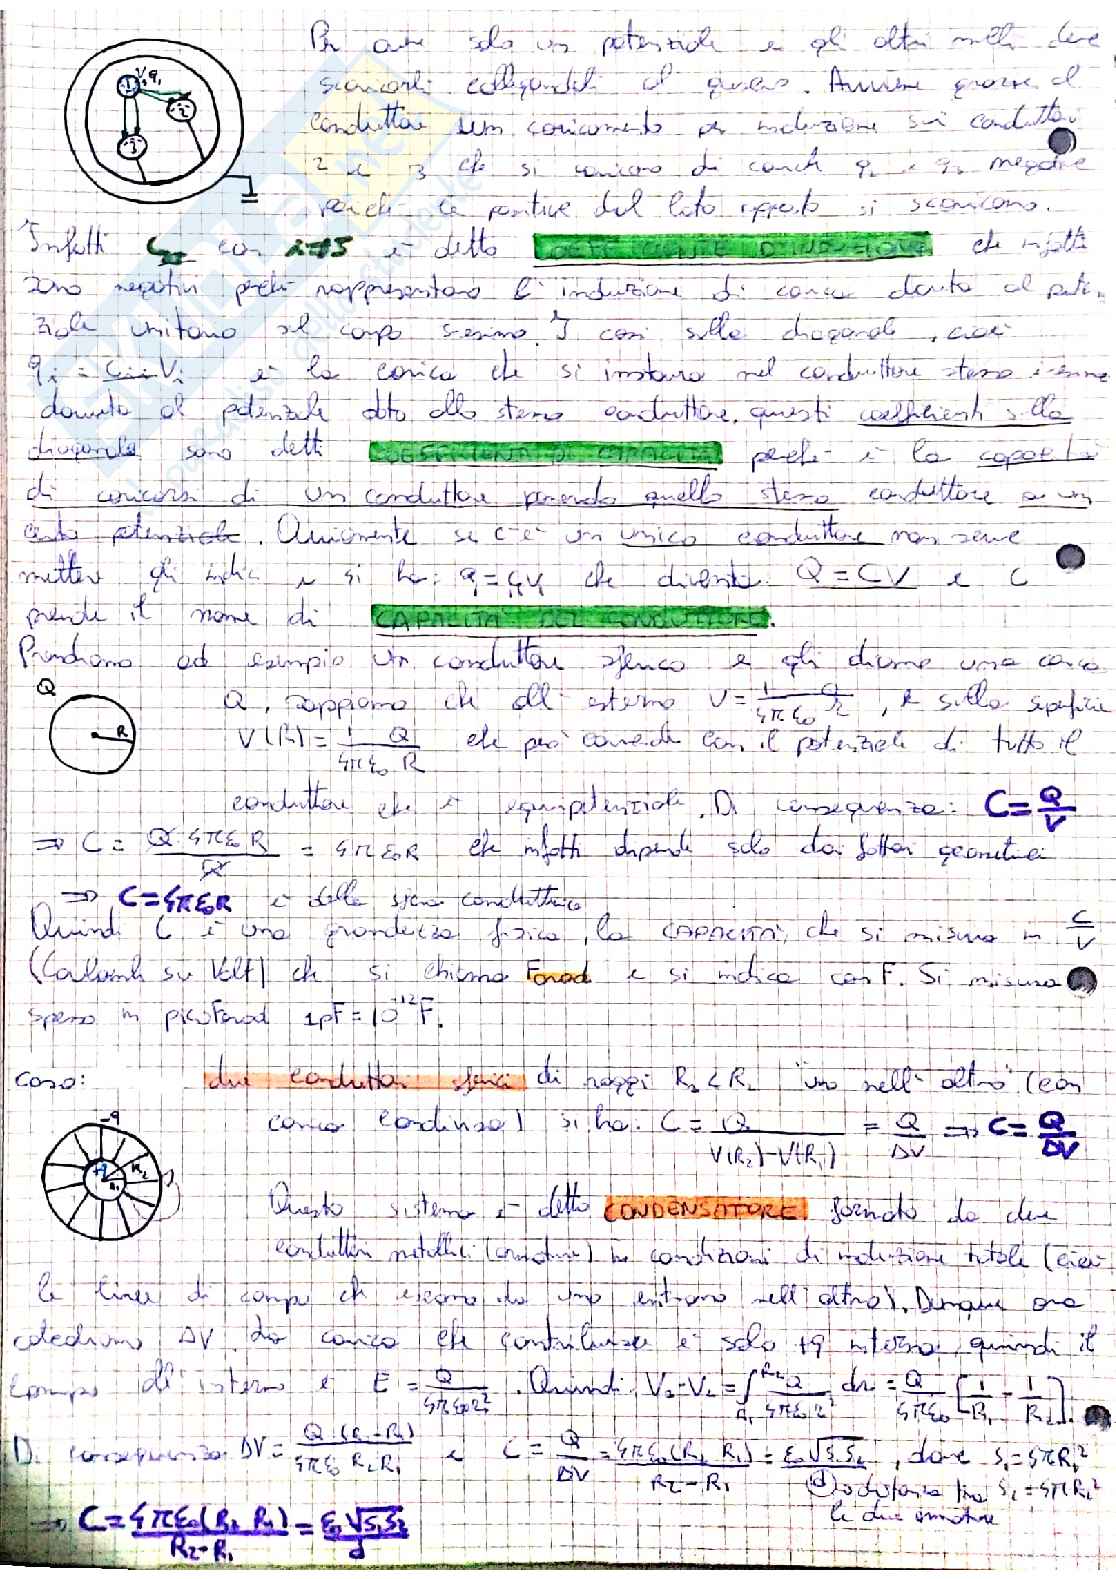 Per avere solo un potenziale e gli altri nulli deve
scaricarli collegandoli al guscio. Avviene grazie al
conduttore un caricamento per induzione sui conduttori
2 e 3 che si caricano di carica q₂ e q₃ negative
perché le positive dal lato opposto si scaricano.
V₁q₁
1
2
3
Infatti con i≠j è detto COEFFICIENTE D'INDUZIONE che infatti
sono negativi perché rappresentano l'induzione di carica dovuta al poten-
ziale unitario sul corpo I casi sulla diagonale, cioè
qᵢ = CᵢᵢVᵢ è la carica che si instaura nel conduttore stesso i-esimo
dovuto al potenziale dato allo stesso conduttore. questi coefficienti sulla
diagonale sono detti COEFFICIENTI DI CAPACITÀ perché è la capacità
di caricarsi di un conduttore ponendo quello stesso conduttore a un
certo potenziale. Ovviamente se c'è un unico conduttore non serve
mettere gli indici e si ha: q=C₁V₁ che diventa Q=CV e C
prende il nome di CAPACITÀ DEL CONDUTTORE.
Prendiamo ad esempio un conduttore sferico e gli diamo una carica
Q
R
Q, sappiamo che all'esterno V = 1/4πε₀ Q/r, e sulla superficie
V(R) = 1/4πε₀ Q/R che però coincide con il potenziale di tutto il
conduttore che è equipotenziale. Di conseguenza: C = Q/V
⇒ C = Q 4πε₀R / Q = 4πε₀R che infatti dipende solo dai fattori geometrici
⇒ C=4πε₀R è della sfera conduttrice
Quindi C è una grandezza fisica, la CAPACITÀ, che si misura in C/V
(Coulomb su Volt) che si chiama Farad e si indica con F. Si misura
spesso in picoFarad 1pF = 10⁻¹²F.
Caso: due conduttori sferici di raggi R₁<R₂ uno nell'altro (con
carica ) si ha: C = Q / V(R₂)-V(R₁) = Q/ΔV ⇒ C = Q/ΔV
-q
+q
R₁
R₂
Questo sistema è detto CONDENSATORE formato da due
conduttori metallici (armature) in condizioni di induzione totale (cioè
le linee di campo che escono da uno entrano nell'altro). Dunque ora
calcoliamo ΔV la carica che contribuisce è solo +q interna, quindi il
campo all'interno è E = Q/4πε₀r². Quindi V₁-V₂ = ∫R₁R₂ Q/4πε₀r² dr = Q/4πε₀ [1/R₁ - 1/R₂].
Di conseguenza ΔV = Q (R₂-R₁)/4πε₀ R₂R₁ e C = Q/ΔV = 4πε₀(R₂ R₁)/R₂-R₁ = ε₀√S₁S₂/d, dove S₁=4πR₁²
d distanza tra S₂=4πR₂²
le due armature
⇒ C = 4πε₀(R₂ R₁)/R₂-R₁ = ε₀√S₁S₂/d